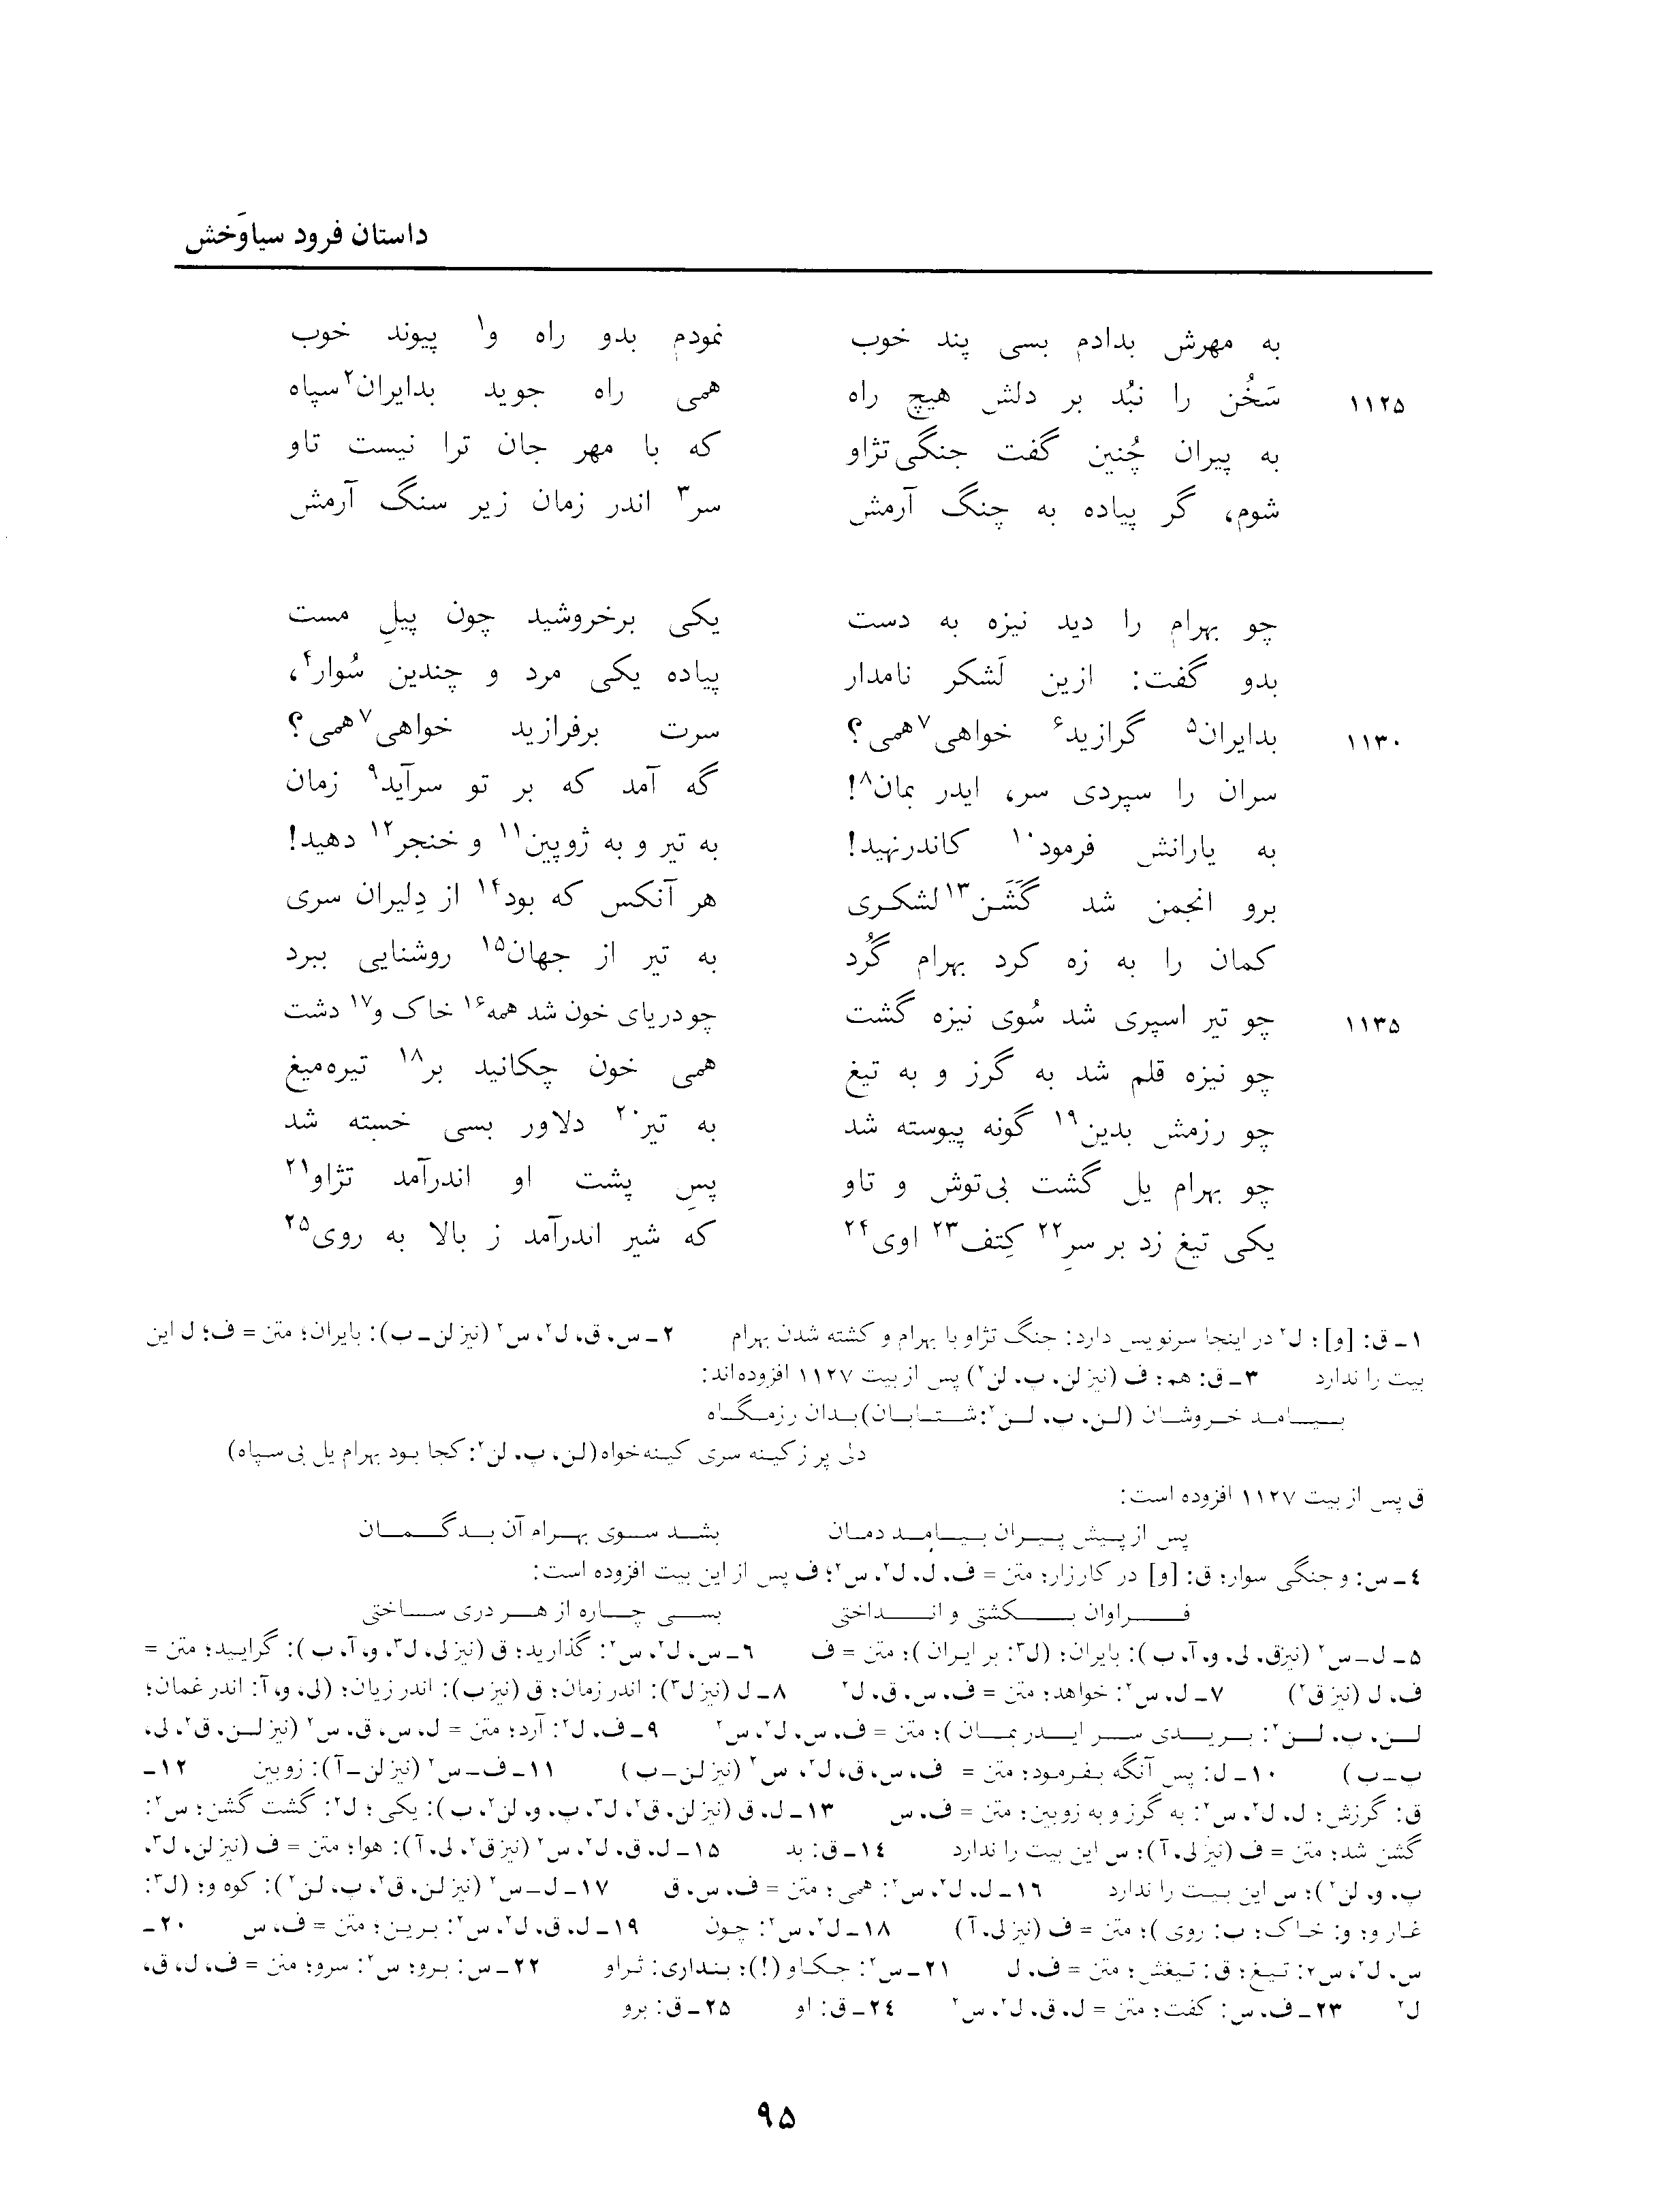 داستان فرود سیاوَخش
به مهرش بدادم بسی پند خوب نمودم بدو راه و۱ پیوند خوب
۱۱۲۵ سَخُن را نبُد بر دلش هیچ راه همی راه جوید بدایران۲ سپاه
به پیران چُنین گفت جنگی تژاو که با مهر جان ترا نیست تاو
شوم، گر پیاده به چنگ آرمش سر۳ اندر زمان زیر سنگ آرمش
چو بهرام را دید نیزه به دست یکی برخروشید چون پیلِ مست
بدو گفت: ازین لَشکر نامدار پیاده یکی مرد و چندین سُوار۴،
۱۱۳۰ بدایران۵ گرازید۶ خواهی۷ همی؟ سرت برفرازید خواهی۷ همی؟
سران را سپردی سر، ایدر بمان۸! گه آمد که بر تو سرآید۹ زمان
به یارانش فرمود۱۰ کاندرنهید! به تیر و به ژوپین۱۱ و خنجر۱۲ دهید!
برو انجمن شد گَشَن۱۳ لشکری هر آنکس که بود۱۴ از دِلیران سری
کمان را به زه کرد بهرام گُرد به تیر از جهان۱۵ روشنایی ببرد
۱۱۳۵ چو تیر اسپری شد سُوی نیزه گشت چو دریای خون شد همه۱۶ خاک و۱۷ دشت
چو نیزه قلم شد به گرز و به تیغ همی خون چکانید بر۱۸ تیره‌میغ
چو رزمش بدین۱۹ گونه پیوسته شد به تیر۲۰ دلاور بسی خسته شد
چو بهرام یل گشت بی‌توش و تاو پسِ پشت او اندرآمد تژاو۲۱
یکی تیغ زد بر سرِ۲۲ کِتف۲۳ اوی۲۴ که شیر اندرآمد ز بالا به روی۲۵
۱ـ ق: [و]؛ ل۲ در اینجا سرنویس دارد: جنگ تژاو با بهرام و کشته شدن بهرام ۲ـ س، ق، ل۲، س۲ (نیز لن ـ ب): بایران؛ متن = ف؛ ل این
بیت را ندارد ۳ـ ق: هم؛ ف (نیز لن، پ، لن۲) پس از بیت ۱۱۲۷ افزوده‌اند:
بیامد خروشان (لن، پ، لن۲: شتابان) بدان رزمگاه
دلی پر ز کینه سری کینه‌خواه (لن، پ، لن۲: کجا بود بهرام یل بی‌سپاه)
ق پس از بیت ۱۱۲۷ افزوده است:
پس از پیش پیران بیامد دمان بشد سوی بهرام آن بدگمان
۴ـ س: و جنگی سوار؛ ق: [و] در کارزار؛ متن = ف، ل، ل۲، س۲؛ ف پس از این بیت افزوده است:
فراوان بکشتی و انداختی بسی چاره از هر دری ساختی
۵ـ ل ـ س۲ (نیز ق۲، لی، و، آ، ب): بایران؛ (ل۳: بر ایران)؛ متن = ف ۶ـ س، ل۲، س۲: گذارید؛ ق (نیز لی، ل۳، و، آ، ب): گرایید؛ متن =
ف، ل (نیز ق۲) ۷ـ ل، س۲: خواهد؛ متن = ف، س، ق، ل۲ ۸ـ ل (نیز ل۳): اندر زمان؛ ق (نیز ب): اندر زیان؛ (لی، و، آ: اندر غمان؛
لن، پ، لن۲: بریدی سر ایدر بمان)؛ متن = ف، س، ل۲، س۲ ۹ـ ف، ل۲: آرد؛ متن = ل، س، ق، س۲ (نیز لن، ق۲، لی،
پ ـ ب) ۱۰ـ ل: پس آنگه بفرمود؛ متن = ف، س، ق، ل۲، س۲ (نیز لن ـ ب) ۱۱ـ ف ـ س۲ (نیز لن ـ آ): زوبین ۱۲ـ
ق: گرزش؛ ل، ل۲، س۲: به گرز و به زوبین؛ متن = ف، س ۱۳ـ ل، ق (نیز لن، ق۲، ل۳، پ، و، لن۲، ب): یکی؛ ل۲: گشت گشن؛ س۲:
گشن شد؛ متن = ف (نیز لی، آ)؛ س این بیت را ندارد ۱۴ـ ق: بد ۱۵ـ ل، ق، ل۲، س۲ (نیز ق۲، لی، آ): هوا؛ متن = ف (نیز لن، ل۳،
پ، و، لن۲)؛ س این بیت را ندارد ۱۶ـ ل، ل۲، س۲: همی؛ متن = ف، س، ق ۱۷ـ ل ـ س۲ (نیز لن، ق۲، پ، لن۲): کوه و؛ (ل۳:
غار و؛ و: خاک؛ ب: روی)؛ متن = ف (نیز لی، آ) ۱۸ـ ل۲، س۲: چون ۱۹ـ ل، ق، ل۲، س۲: برین؛ متن = ف، س ۲۰ـ
س، ل۲، س۲: تیغ؛ ق: تیغش؛ متن = ف، ل ۲۱ـ س۲: جکاو (!)؛ بنداری: ثراو ۲۲ـ س: برو؛ س۲: سرو؛ متن = ف، ل، ق،
ل۲ ۲۳ـ ف، س: کفت؛ متن = ل، ق، ل۲، س۲ ۲۴ـ ق: او ۲۵ـ ق: برو
۹۵